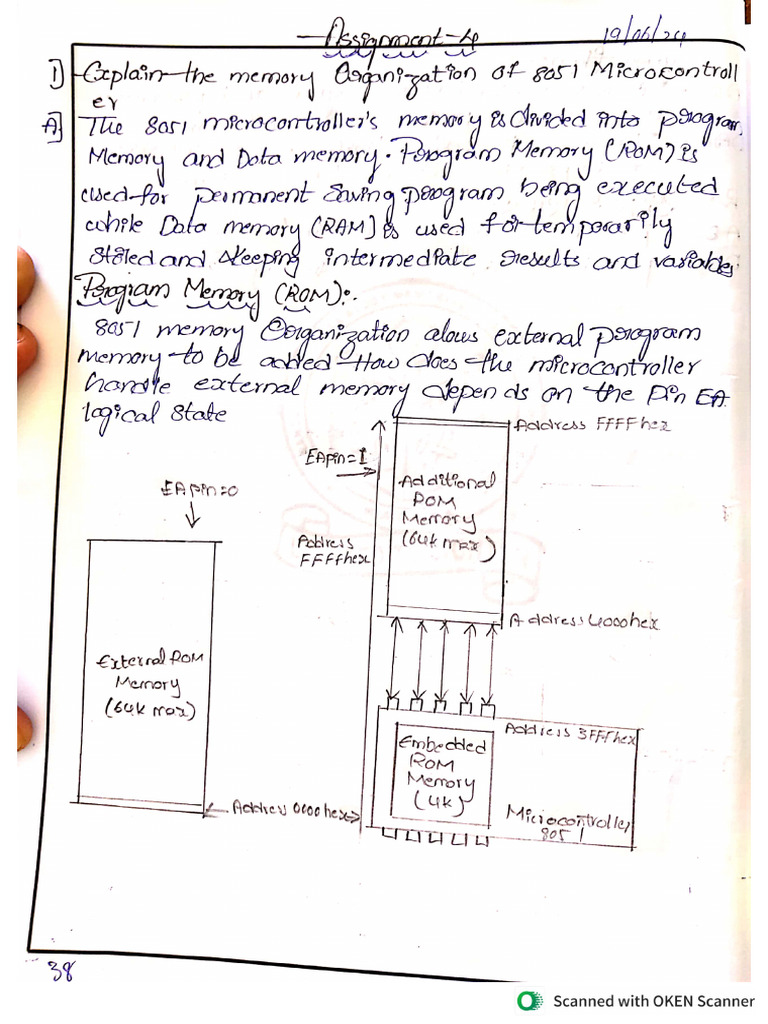 Assignment-4
19/06/24
1) Explain the memory Organization of 8051 Microcontroll
er
A) The 8051 microcontroller's memory is divided into program
Memory and Data memory. Program Memory (ROM) is
used for permanent Saving program being executed
while Data memory (RAM) is used for temporarily
stored and keeping intermediate results and variables
Program Memory (ROM):.
8051 memory Oorganization alows external program
memory to be added How does the microcontroller
handle external memory depends on the Pin EA
logical State
Address FFFF hex
EA pin = 1
EA pin = 0
Additional
ROM
Memory
(64k max)
Address
FFFF hex
Address 4000 hex
External ROM
Memory
(64k max)
Address 3FFF hex
Embedded
ROM
Memory
(4k)
Address 0000 hex
Microcontroller
8051
38
Scanned with OKEN Scanner